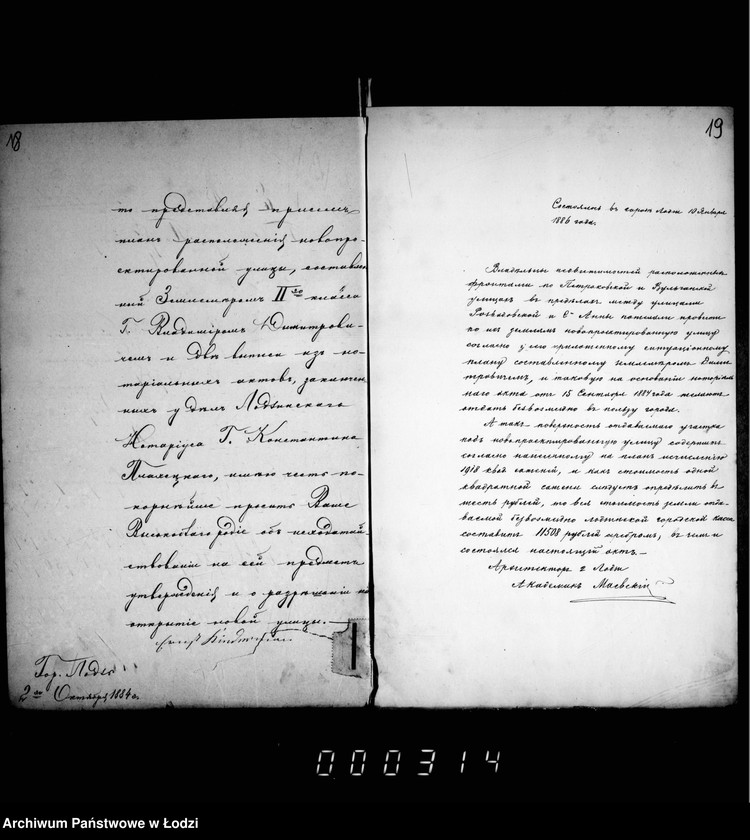 18
то представляя при семъ
планъ расположенія новопро-
ектированной улицы, составлен
ный Землемѣромъ IIго класса
Г. Владиміромъ Димитрови-
чемъ и двѣ выписи изъ но-
таріальныхъ актовъ, заключен
ныхъ у дѣлъ Лодзинскаго
Нотаріуса Г. Константина
Плахецкаго, имѣю честь по-
корнѣйше просить Ваше
Высокоблагородіе объ исходатай-
ствованіи на сей предметъ
утвержденія и о разрѣшеніи на
открытіе новой улицы.
Ernst
Гор. Лодзь
2го Октября 1884 г.
19
Состоялся въ городѣ Лодзи 10 Января
1886 года.
Владѣльцы недвижимостей расположенныхъ
фронтами по Петроковской и Вульчанской
улицамъ въ предѣлахъ между улицами
Розвадовской и Св Анны пожелали провести
по ихъ землямъ новопроектированную улицу
согласно у сего приложенному ситуаціонному
плану составленному землемѣромъ Дими
тровичемъ, и таковую на основаніи нотаріаль
наго акта отъ 15 Сентября 1884 года желаютъ
отдать безвозмездно въ пользу города.
А такъ поверхность отдаваемаго участка
подъ новопроектированную улицу содержитъ
согласно нанесенному на планѣ исчисленію
1918 квад саженей, и какъ стоимость одной
квадратной сажени слѣдуетъ опредѣлить въ
шесть рублей, то вся стоимость земли отда-
ваемой безвозмездно лодзинской городской кассѣ
составитъ 11508 рублей серебромъ, въ чемъ и
состоялся настоящій актъ.
Архитекторъ г Лодзи
Академикъ Маевскій
000314
Archiwum Państwowe w Łodzi